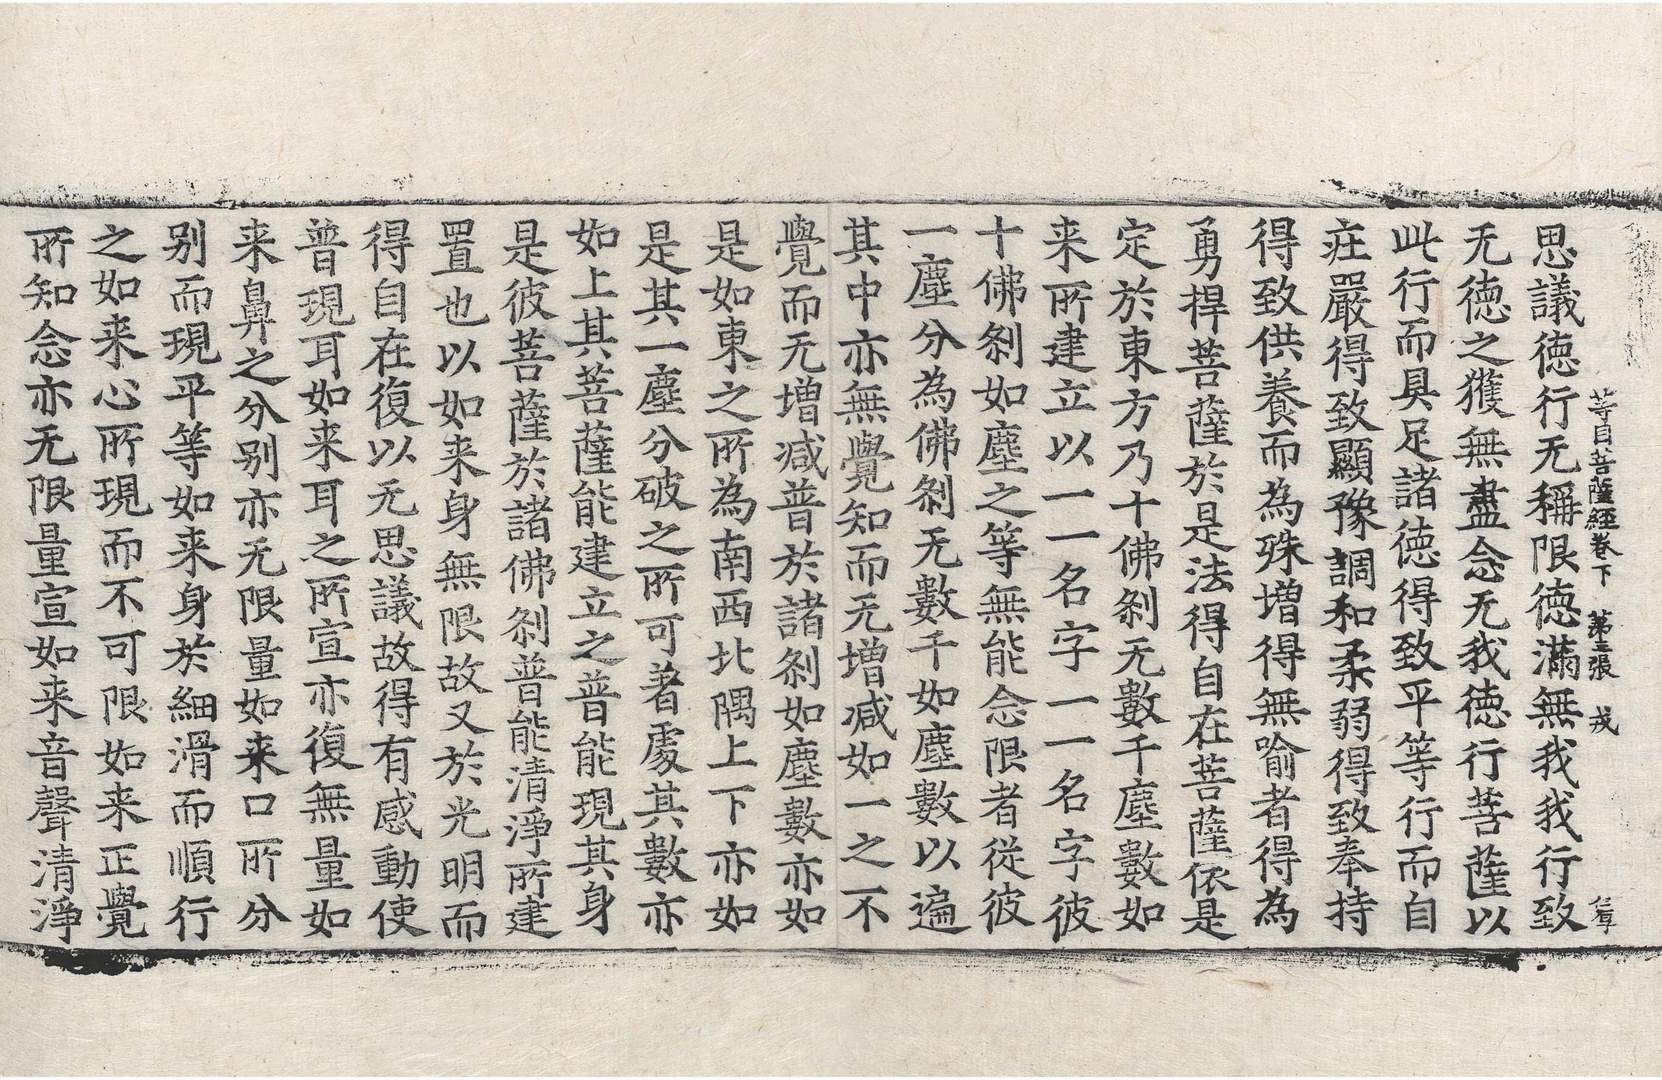 等目菩薩經卷下　第三張　戎　仁擇
思議德行无稱限德滿無我我行致
无德之獲無盡念无我德行菩薩以
此行而具足諸德得致平等行而自
莊嚴得致顯豫調和柔弱得致奉持
得致供養而為殊增得無喻者得為
勇捍菩薩於是法得自在菩薩依是
定於東方乃十佛剎无數千塵數如
来所建立以一一名字一一名字彼
十佛剎如塵之等無能念限者從彼
一塵分為佛剎无數千如塵數以遍
其中亦無覺知而无增減如一之不
覺而无增減普於諸剎如塵數亦如
是如東之所為南西北隅上下亦如
是其一塵分破之所可著處其數亦
如上其菩薩能建立之普能現其身
是彼菩薩於諸佛剎普能清淨所建
置也以如来身無限故又於光明而
得自在復以无思議故得有感動使
普現耳如来耳之所宣亦復無量如
来鼻之分别亦无限量如来口所分
别而現平等如来身於細滑而順行
之如来心所現而不可限如来正覺
所知念亦无限量宣如来音聲清淨